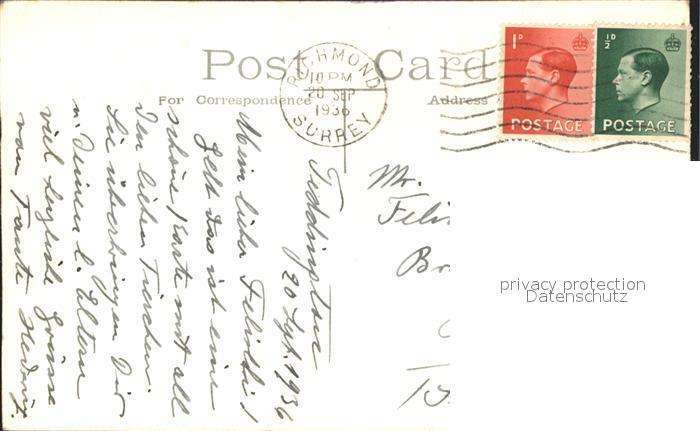 Post Card
For Correspondence
Address
RICHMOND
10 PM
20 SEP
1936
SURREY
1D
POSTAGE
½D
POSTAGE
Teddington
20 Sept. 1936
Mein lieber Felixli!
Gelt das ist eine
schöne Karte mit all
den lieben Tierchen.
Sie überbringen Dir
u. Deinen l. Eltern
viel englische Grüsse
von Tante Hedwig.
Mr.
Feli
Br
privacy protection
Datenschutz